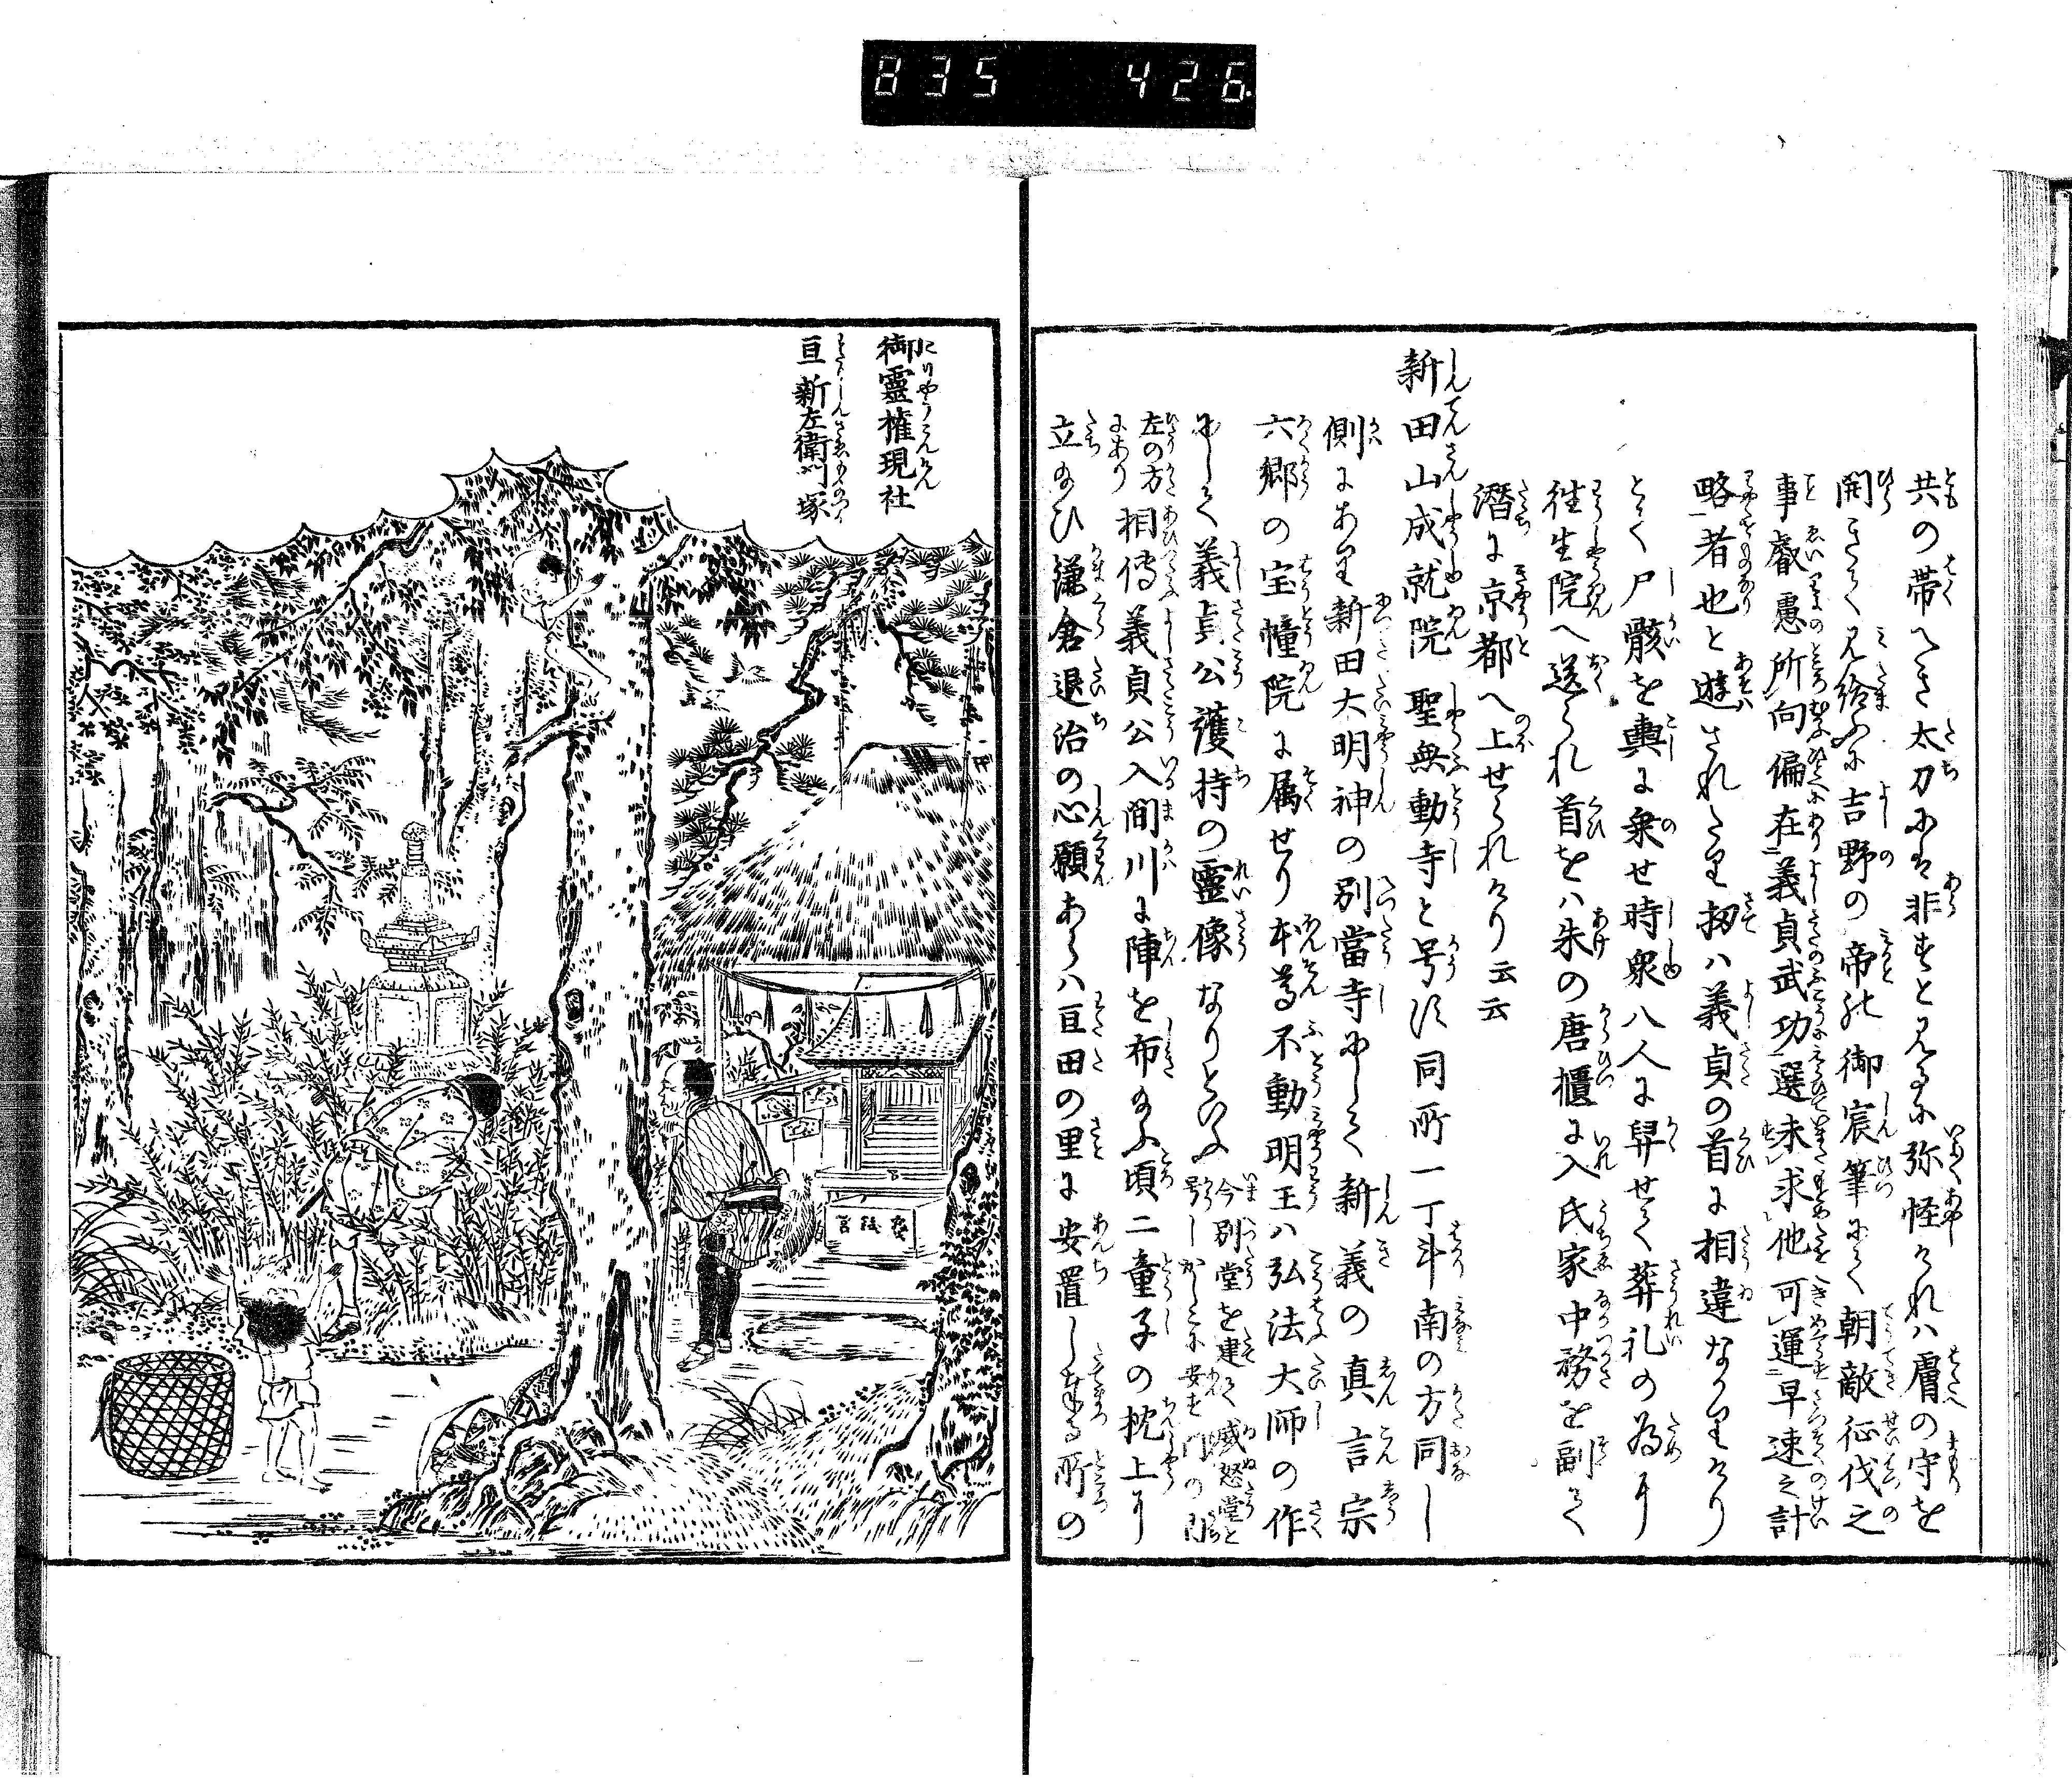 835 426
共の帯へき太刀にも非すと見るに弥怪けれハ膚の守を
開きて見給ふに吉野の帝の御宸筆にて朝敵征伐之
事叡慮所向偏在義貞武功選未求他可運早速之計
略者也と遊されたり扨ハ義貞の首に相違なかりけり
とて尸骸を輿に乗せ時衆八人に舁せて葬礼の為に
往生院へ送られ首をハ朱の唐櫃に入氏家中務を副て
潛に京都へ上せられけり云云
新田山成就院聖無動寺と号す同所一丁斗南の方同し
側にあり新田大明神の別當寺にして新義の真言宗
六郷の宝幢院に属せり本尊不動明王ハ弘法大師の作
にして義貞公護持の霊像なりといふ今別堂を建て威怒堂と
号しかしこに安す門の内
左の方
にあり相傳義貞公入間川に陣を布給ふ頃二童子の枕上に
立給ひ鎌倉退治の心願あらハ亘田の里に安置し奉る所の
御靈権現社
にりやうこんけん
亘新左衛門塚